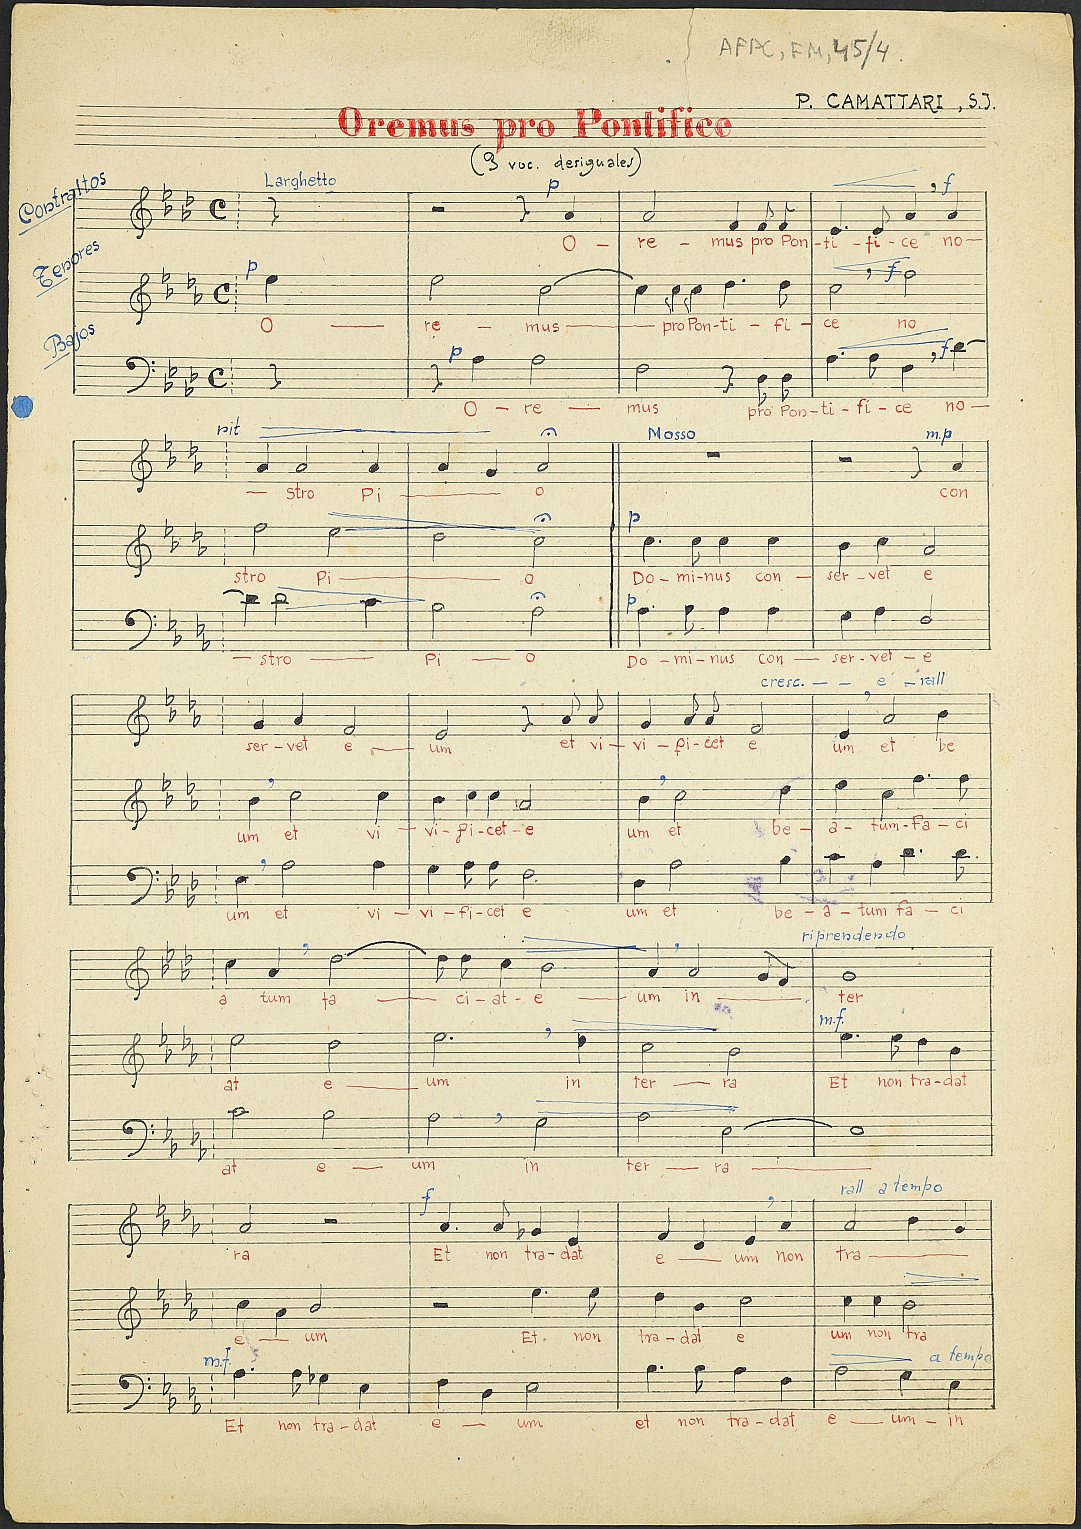 AFPC, FM, 45/4.
P. CAMATTARI, S.J.
Oremus pro Pontifice
(3 voc. desiguales)
Contraltos
Larghetto
p
f
O - re - mus pro Pon - ti - fi - ce no —
Tenores
p
f
O — re - mus — pro Pon - ti - fi - ce no
Bajos
p
f
O - re — mus pro Pon - ti - fi - ce no —
rit
Mosso
m.p
— stro Pi — o con
p
stro Pi — o Do - mi - nus con — ser - vet e
p
— stro — Pi — o Do - mi - nus con — ser - vet - e
cresc. - - e - rall
ser - vet e — um et vi - vi - fi - cet e um et be
um et vi — vi - fi - cet - e um et be - a - tum - fa - ci
um et vi — vi - fi - cet e um et be - a - tum fa - ci
riprendendo
a tum fa — ci - at - e — um in — ter
m.f.
at e — um in ter — ra Et non tra - dat
at e — um in ter — ra —
f
rall a tempo
ra Et non tra - dat e — um non tra —
e — um Et. non tra - dat e um non tra
m.f.
a tempo
Et non tra - dat e — um et non tra - dat e — um - in